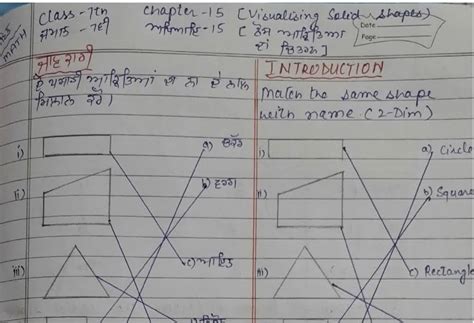 Class-7th Chapter-15 [Visualising Solid Shapes]
ਜਮਾਤ -7ਵੀਂ ਅਧਿਆਇ-15 [ ਠੋਸ ਆਕਿਰਤਿਆਂ
ਦਾ ਚਿਤਰਣ]
Date
Page
MATH
ਜਾਣਕਾਰੀ
ਮਿਲਾਨ ਕਰੋ)
i)
a) ਚੱਕਰ
ii)
b) ਵਰਗ
c) ਆਇਤ
iii)
INTRODUCTION
Match the same shape
with name (2-Dim)
i)
a) Circle
ii)
b) Square
c) Rectangle
iii)